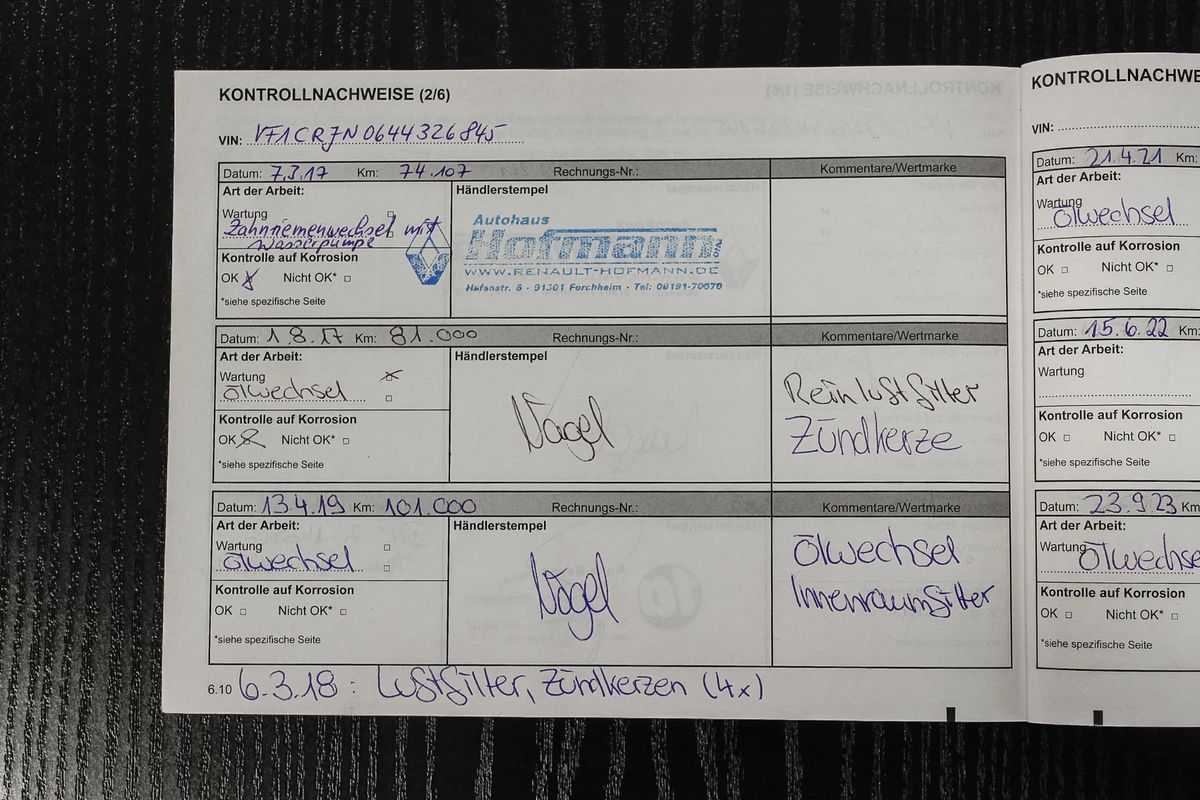 KONTROLLNACHWEISE (2/6)
VIN: VF1CR7N0644326845
Datum: 7.3.17 Km: 74.107 Rechnungs-Nr.: Kommentare/Wertmarke
Art der Arbeit: Händlerstempel
Wartung
Zahnriemenwechsel mit
Wasserpumpe
Kontrolle auf Korrosion
OK Nicht OK*
*siehe spezifische Seite
Autohaus
Hofmann
WWW.RENAULT-HOFMANN.DE
Hafenstr. 8 - 91301 Forchheim - Tel: 09191-70670
Datum: 1.8.17 Km: 81.000 Rechnungs-Nr.: Kommentare/Wertmarke
Art der Arbeit: Händlerstempel
Wartung
Ölwechsel
Kontrolle auf Korrosion
OK Nicht OK*
*siehe spezifische Seite
Nagel
Reinluftfilter
Zündkerze
Datum: 13.4.19 Km: 101.000 Rechnungs-Nr.: Kommentare/Wertmarke
Art der Arbeit: Händlerstempel
Wartung
Ölwechsel
Kontrolle auf Korrosion
OK Nicht OK*
*siehe spezifische Seite
Nagel
Ölwechsel
Innenraumfilter
6.10 6.3.18: Luftfilter, Zündkerzen (4x)
KONTROLLNACHWE
VIN:
Datum: 21.4.21 Km:
Art der Arbeit:
Wartung
Ölwechsel
Kontrolle auf Korrosion
OK Nicht OK*
*siehe spezifische Seite
Datum: 15.6.22 Km:
Art der Arbeit:
Wartung
Kontrolle auf Korrosion
OK Nicht OK*
*siehe spezifische Seite
Datum: 23.9.23 Km
Art der Arbeit:
Wartung
Ölwechse
Kontrolle auf Korrosion
OK Nicht OK*
*siehe spezifische Seite